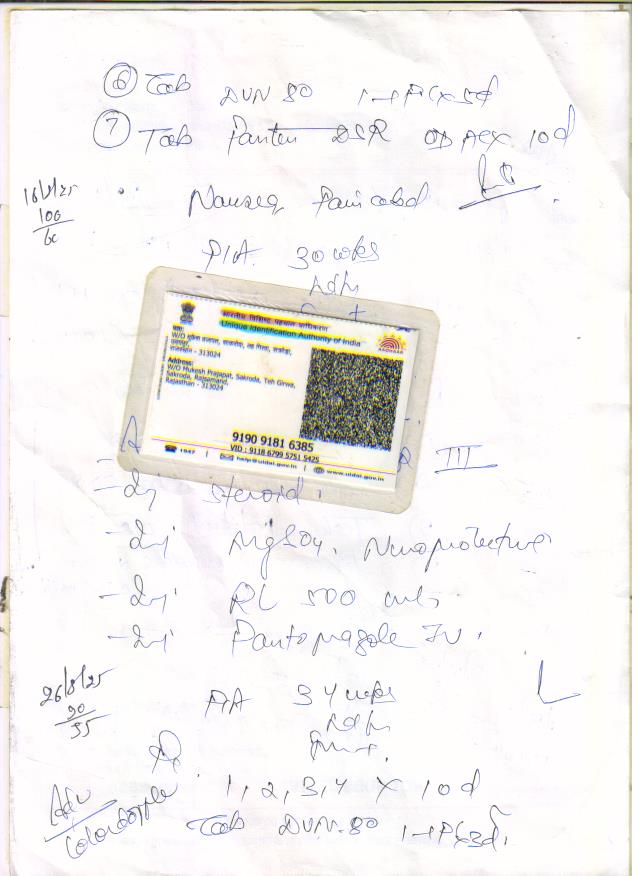 ⑥ Tab DVN 80 1-1 PCX5d
⑦ Tab Panten DSR OD ACX 10d
16/8/25
100
60
Nausea Pain abd
P/A. 30 wks
भारतीय विशिष्ट पहचान प्राधिकरण
Unique Identification Authority of India
AADHAAR
पता:
राजस्थान - 313024
Address:
W/O Mukesh Prajapat, Sakroda, Teh Girwa,
Sakroda, Rajsamand,
Rajasthan - 313024
9190 9181 6385
VID : 9118 6799 5751 5425
1947 | help@uidai.gov.in | www.uidai.gov.in
III
- Inj steroid
- Inj MgSO4. Neuroprotective
- Inj RL 500 ml
- Inj Pantoprazole IV.
26/8/25
90
55
P/A 34 wks
1, 2, 3, 4 X 10d
Adv
Colordopple
Tab DVN-80 1-1 PCX3d